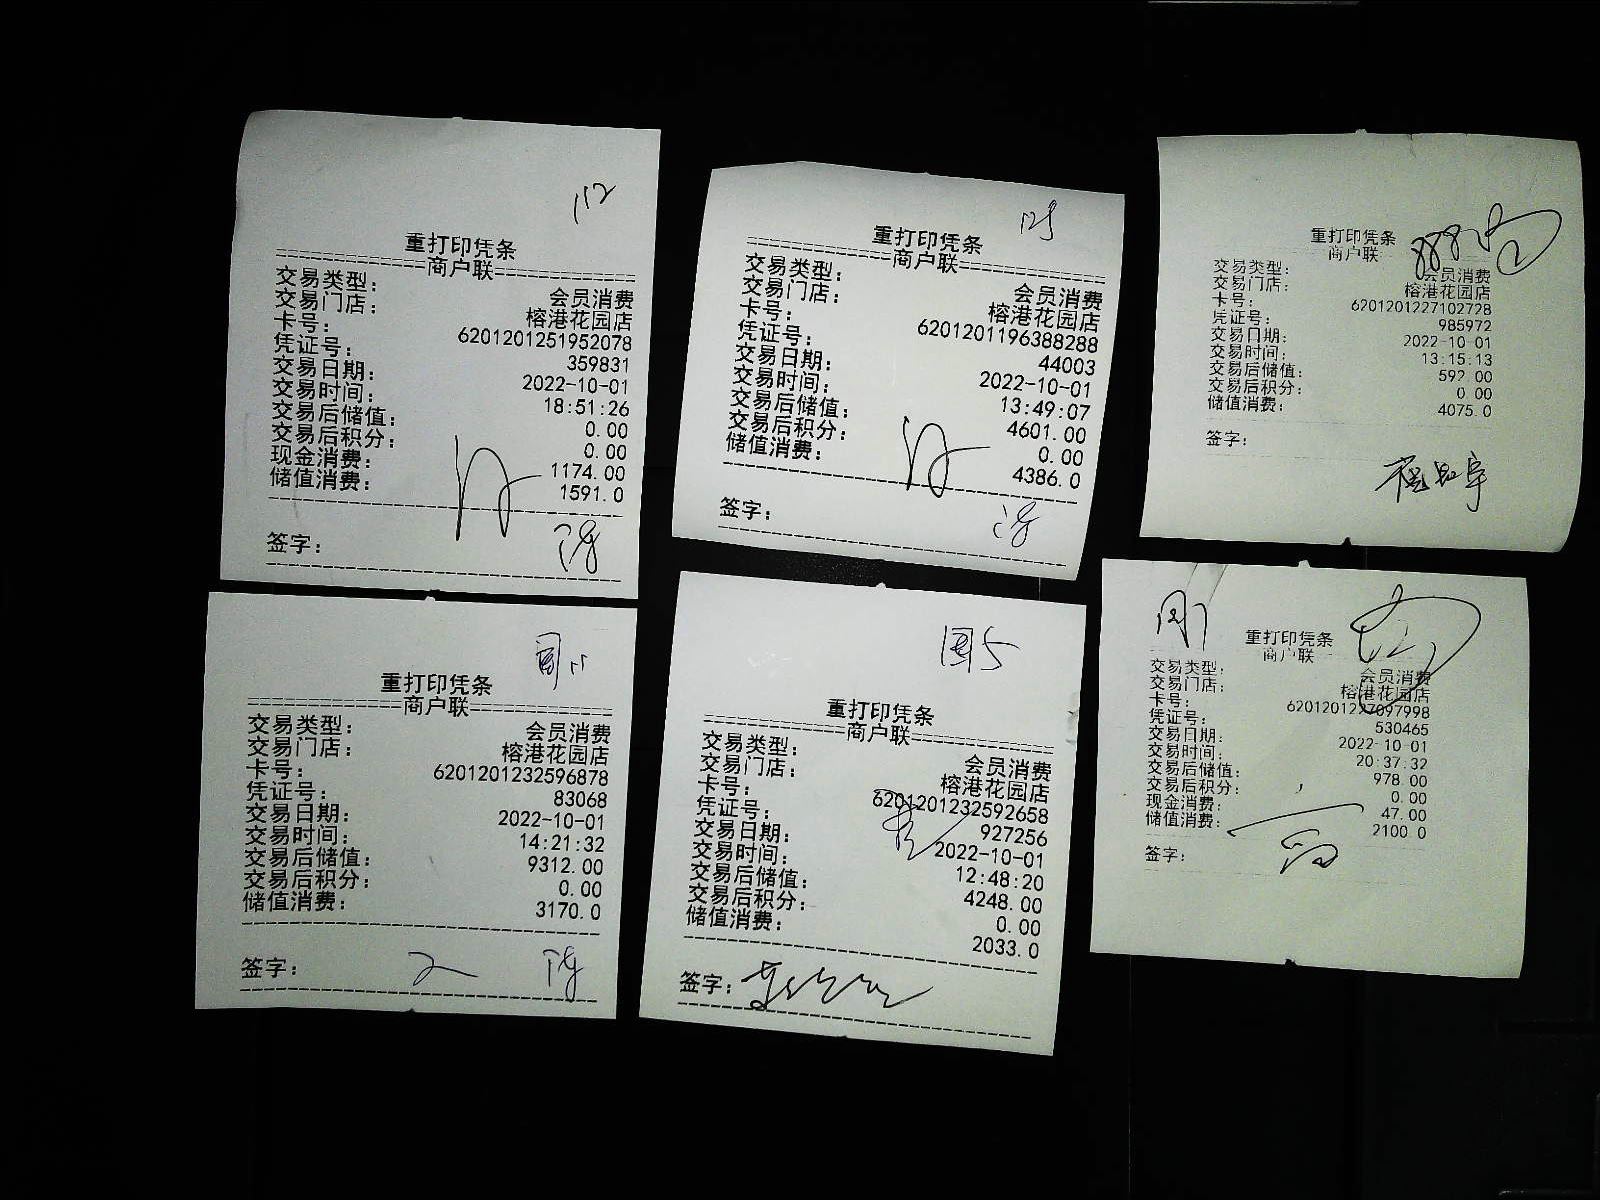 112
重打印凭条
商户联
交易类型： 会员消费
交易门店： 榕港花园店
卡号： 6201201251952078
凭证号： 359831
交易日期： 2022-10-01
交易时间： 18:51:26
交易后储值： 0.00
交易后积分： 0.00
现金消费： 1174.00
储值消费： 1591.0
签字：
125
重打印凭条
商户联
交易类型： 会员消费
交易门店： 榕港花园店
卡号： 6201201196388288
凭证号： 44003
交易日期： 2022-10-01
交易时间： 13:49:07
交易后储值： 4601.00
交易后积分： 0.00
储值消费： 4386.0
签字：
888
重打印凭条
商户联
交易类型： 会员消费
交易门店： 榕港花园店
卡号： 6201201227102728
凭证号： 985972
交易日期： 2022-10-01
交易时间： 13:15:13
交易后储值： 592.00
交易后积分： 0.00
储值消费： 4075.0
签字：
重打印凭条
商户联
交易类型： 会员消费
交易门店： 榕港花园店
卡号： 6201201232596878
凭证号： 83068
交易日期： 2022-10-01
交易时间： 14:21:32
交易后储值： 9312.00
交易后积分： 0.00
储值消费： 3170.0
签字：
围5
重打印凭条
商户联
交易类型： 会员消费
交易门店： 榕港花园店
卡号： 6201201232592658
凭证号： 927256
交易日期： 2022-10-01
交易时间： 12:48:20
交易后储值： 4248.00
交易后积分： 0.00
储值消费： 2033.0
签字：
重打印凭条
商户联
交易类型： 会员消费
交易门店： 榕港花园店
卡号： 6201201227097998
凭证号： 530465
交易日期： 2022-10-01
交易时间： 20:37:32
交易后储值： 978.00
交易后积分： 0.00
现金消费： 47.00
储值消费： 2100.0
签字：